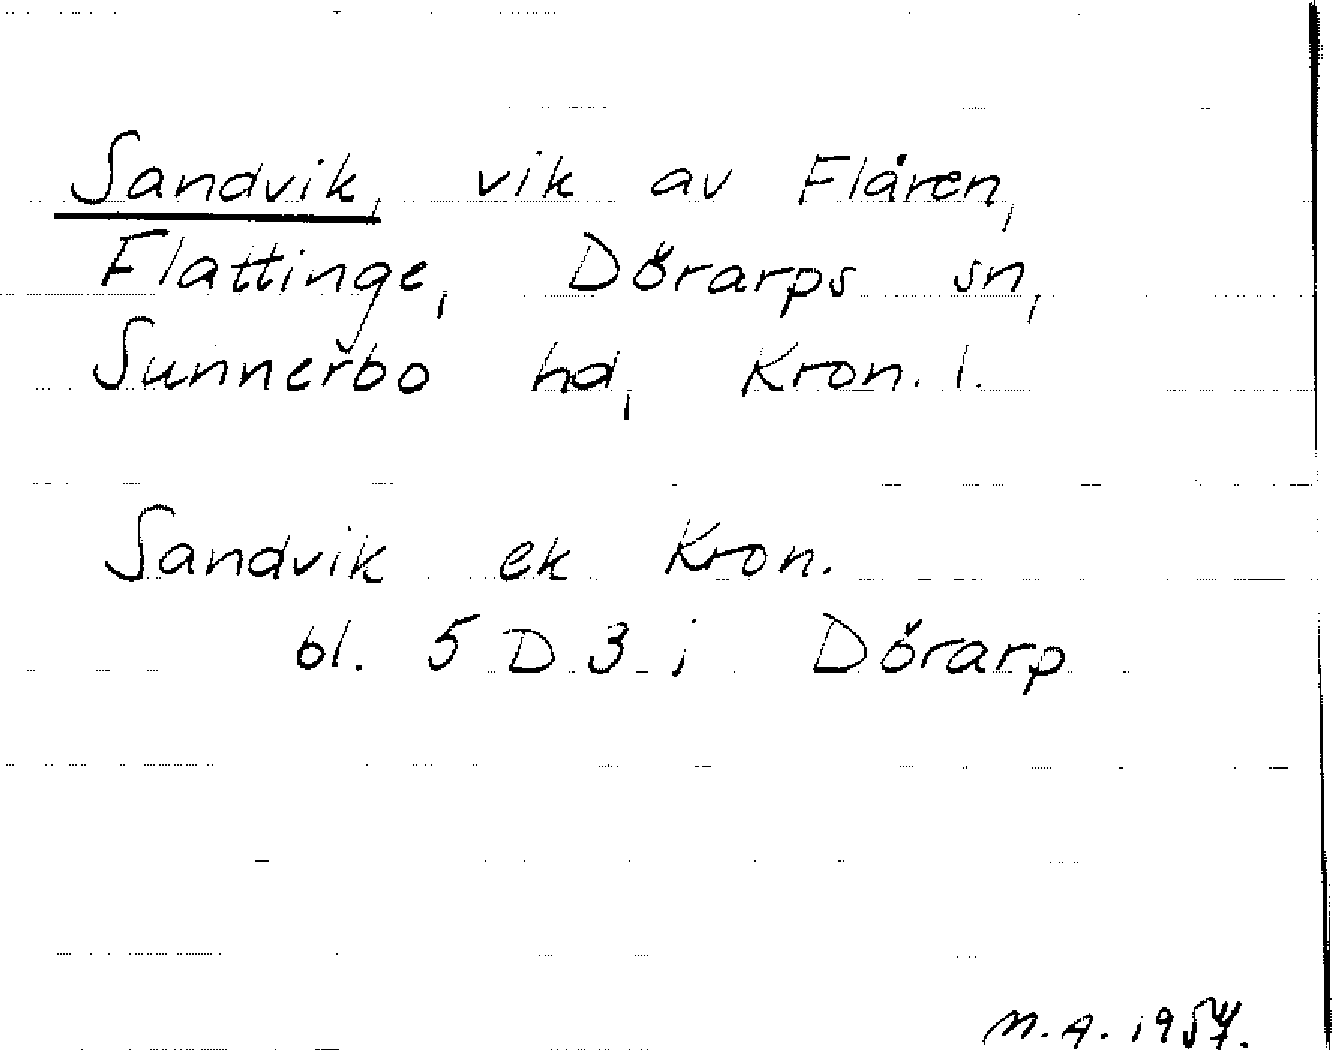 Sandvik, vik av Flåren,
Flattinge, Dörarps sn,
Sunnerbo hd, Kron. l.
Sandvik ek Kron.
bl. 5 D 3 i Dörarp
M.A. 1954.